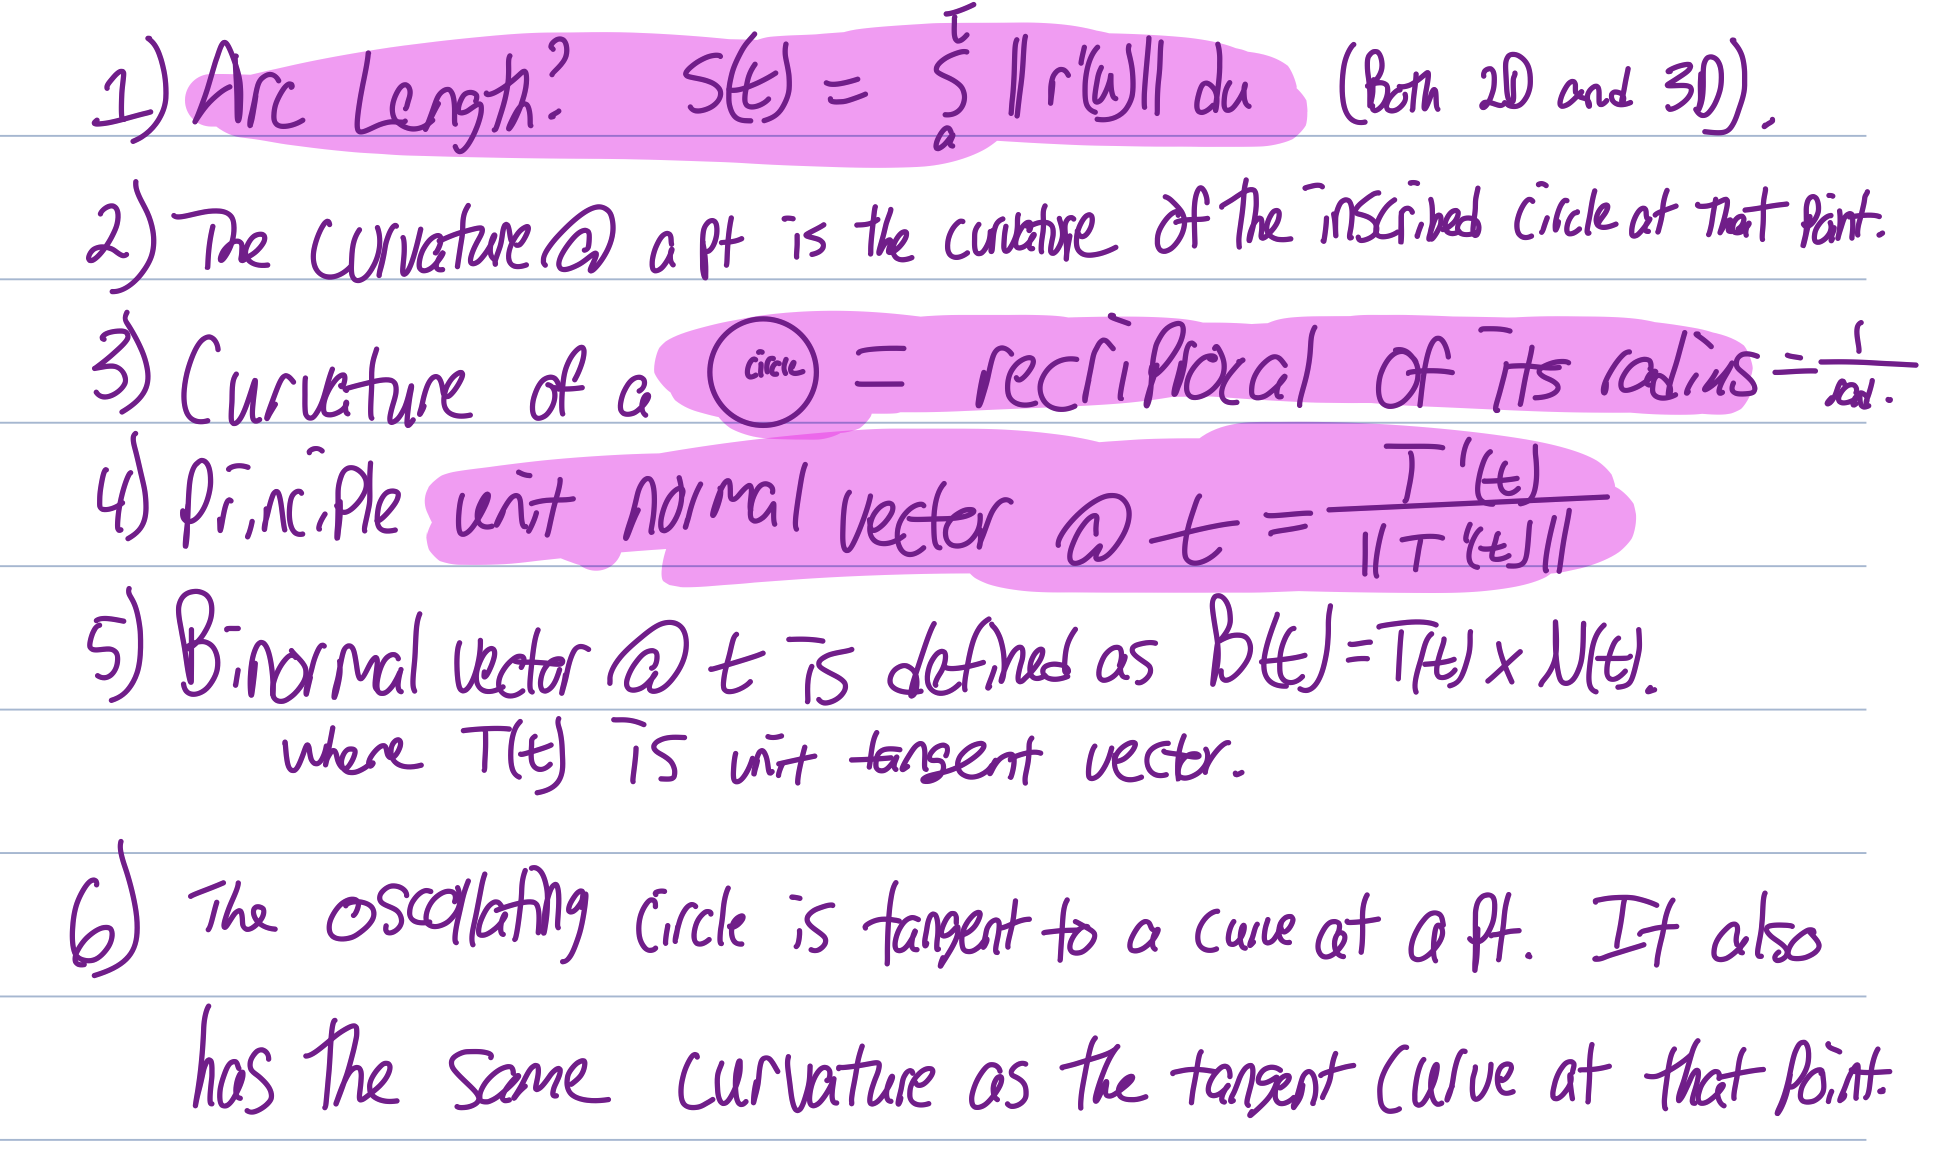 1) Arc Length? S(t) = ∫ₐᵗ ||r'(u)|| du (Both 2D and 3D).
2) The curvature @ a pt is the curvature of the inscribed circle at that point.
3) Curvature of a circle = reciprocal of its radius = 1/rad.
4) Principle unit normal vector @ t = T'(t)/||T'(t)||
5) Binormal vector @ t is defined as B(t) = T(t) x N(t).
where T(t) is unit tangent vector.
6) The oscullating circle is tangent to a curve at a pt. It also
has the same curvature as the tangent curve at that point.